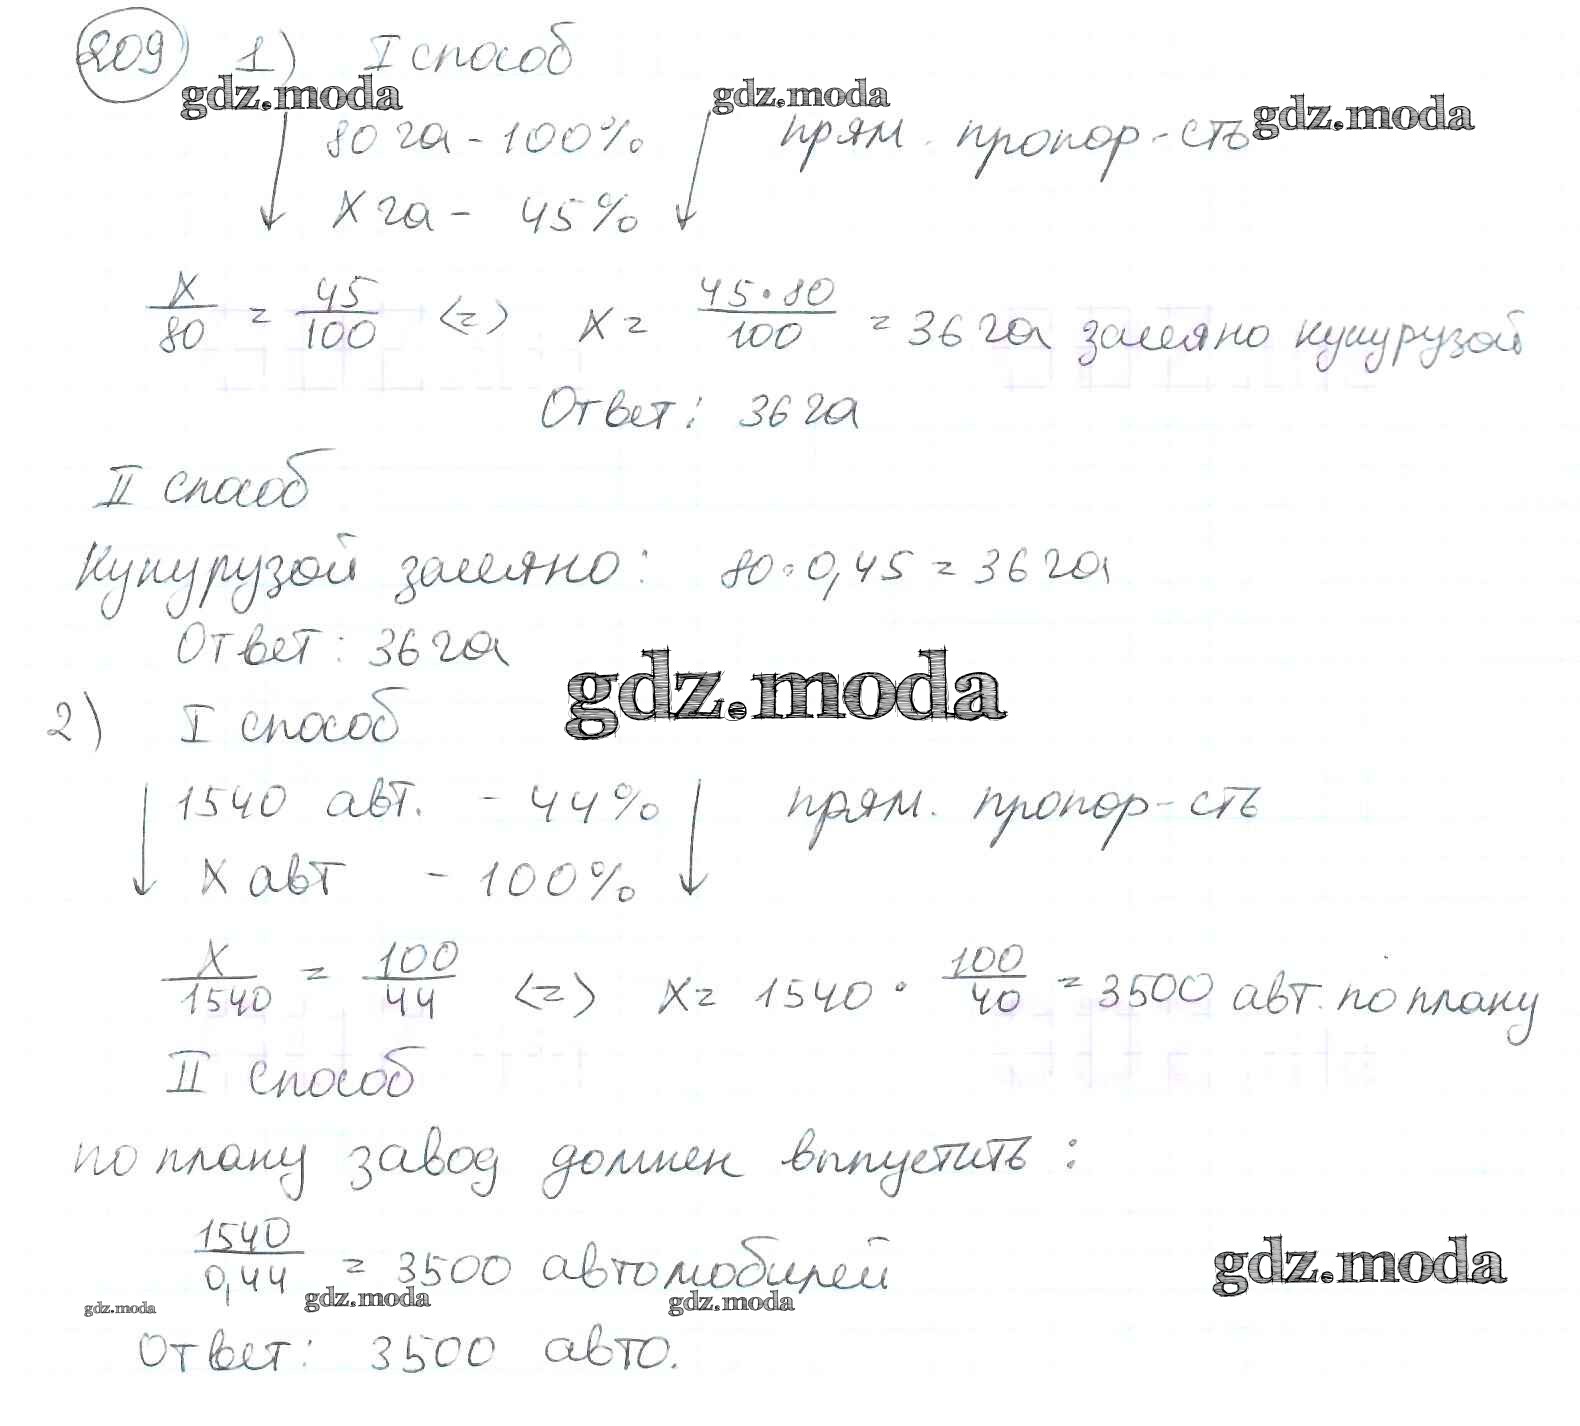 209 1) I способ
gdz.moda gdz.moda gdz.moda
80 га - 100% прям. пропор-сть
x га - 45%
x/80 = 45/100 <=> x = 45·80/100 = 36 га засеяно кукурузой
Ответ: 36 га
II способ
Кукурузой засеяно: 80·0,45 = 36 га
Ответ: 36 га
gdz.moda
2) I способ
1540 авт. - 44% прям. пропор-сть
x авт - 100%
x/1540 = 100/44 <=> x = 1540 · 100/40 = 3500 авт. по плану
II способ
по плану завод должен выпустить:
1540/0,44 = 3500 автомобилей
gdz.moda
gdz.moda gdz.moda gdz.moda
Ответ: 3500 авто.